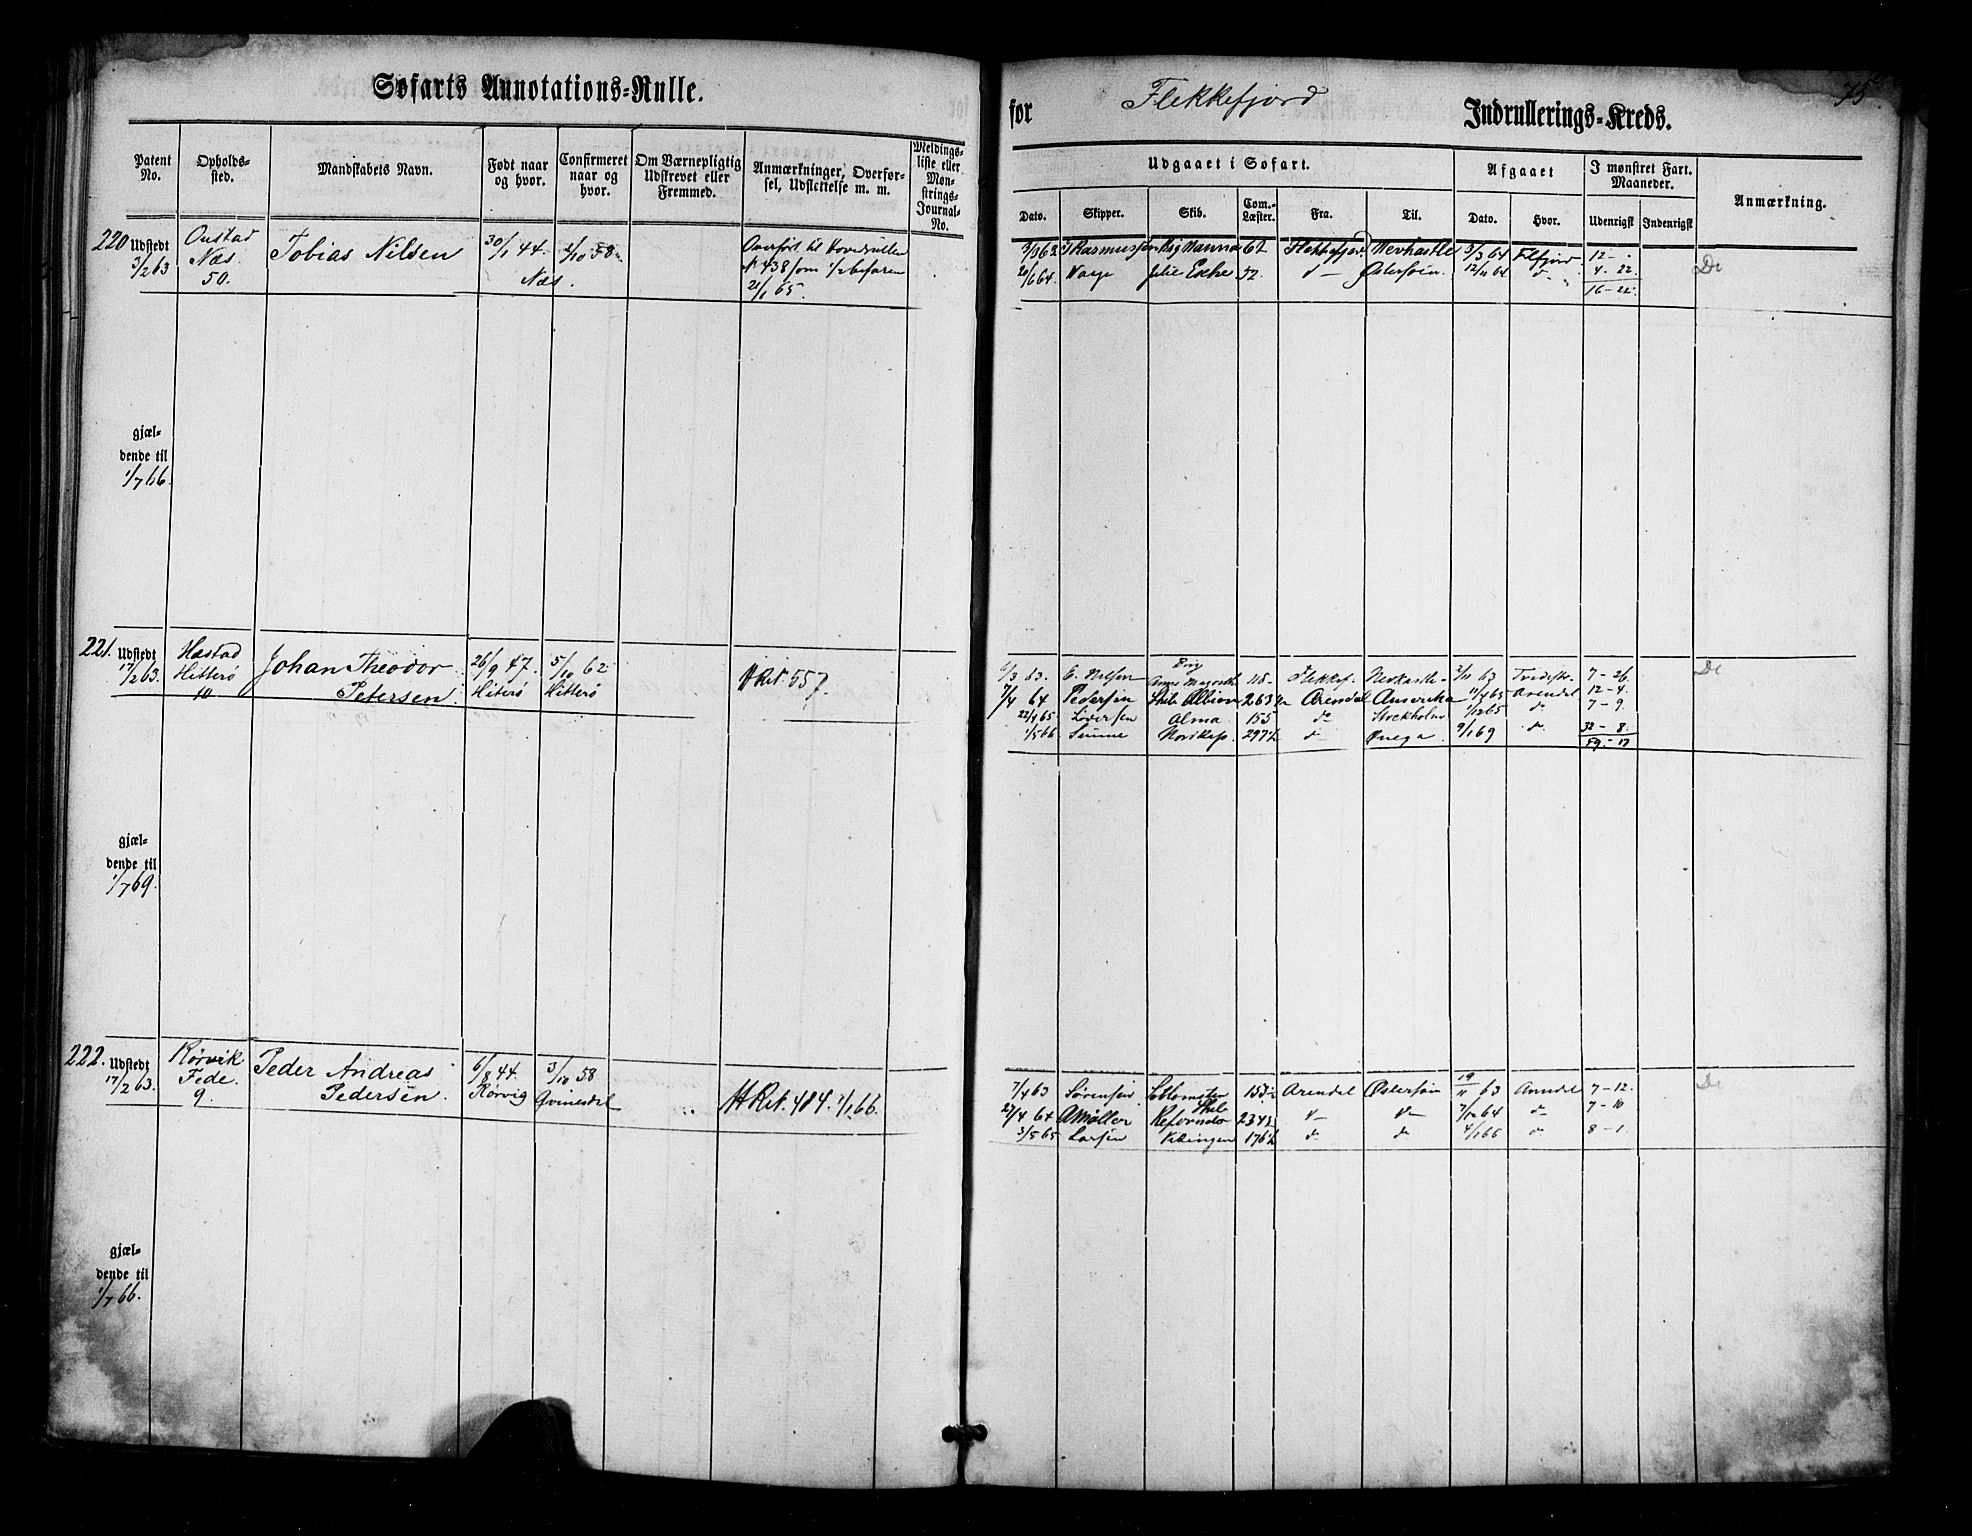 Søfarts Annotations=Rulle.
for Flekkefjord Indrullerings=Kreds.
75
Patent No.
Opholds- sted.
Mandskabets Navn.
Født naar og hvor.
Confirmeret naar og hvor.
Om Værnepligtig Udskrevet eller Fremmed.
Anmærkninger, Overfør- sel, Udslettelse m. m.
Meldings- liste eller Møn- strings- Journal- No.
Udgaaet i Søfart.
Afgaaet
I mønstret Fart. Maaneder.
Anmærkning.
Dato. Skipper. Skib. Com.- Læster. Fra. Til. Dato. Hvor. Udenrigst Indenrigst
220 Udstedt 3/2 63
Næs.
50.
Tobias Nilsen
30/1 44.
Næs.
2/10 58
Overført til Hovedrullen
N. 438 som 1/2 befaren
21/1 65.
3/3 63 Rasmussen Brig Nanna 62 Flekkefjord Newkastle 3/3 64 Flfjord 12 -
20/6 64. Wage 52. d- Østersøen. 12/11 64 d- 4 - 22
16 - 22.
De
gjæl-
dende til
1/7 66.
221. Udstedt 17/2 63.
Hitterø
10
Johan Theodor
Petersen
26/9 47.
Hiterø
5/10 62
Hitterø
H Rul. 557.
6/3 63. Brig 118. Flekkef. 63 7 - 26.
7/4 64 Pedersen Skib Albion 263 Arendal Amerika Arendal 12 - 4.
22/4 65 Alma 155 do Stockholm 1/12 65 do 7 - 9.
1/5 66 297 1/2 d- 9/1 69 do 32 - 8.
59 - 17
De
gjæl-
dende til
1/7 69.
222. Udstedt 17/2 63.
Rørvik
Fede.
9.
Peder Andreas
Pedersen.
6/8 44.
Rørvig
3/10 58
Qvinesdal
H Rul. 484. 4/1 66.
7/4 63 Sørensen 153 Arendal Østersøen 19/11 63 Arendal 7 - 12.
27/4 64 AMøller Skib 234 1/2 d- d- 7/12 64 d- 7 - 10
3/5 65 Larsen Vikingen 176 1/2 do do 4/1 66 do 8 - 1.
De
gjæl-
dende til
1/7 66.